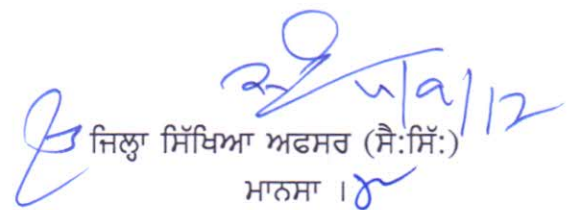 5/9/12
ਜਿਲ੍ਹਾ ਸਿੱਖਿਆ ਅਫਸਰ (ਸੈ:ਸਿੱ:)
ਮਾਨਸਾ ।